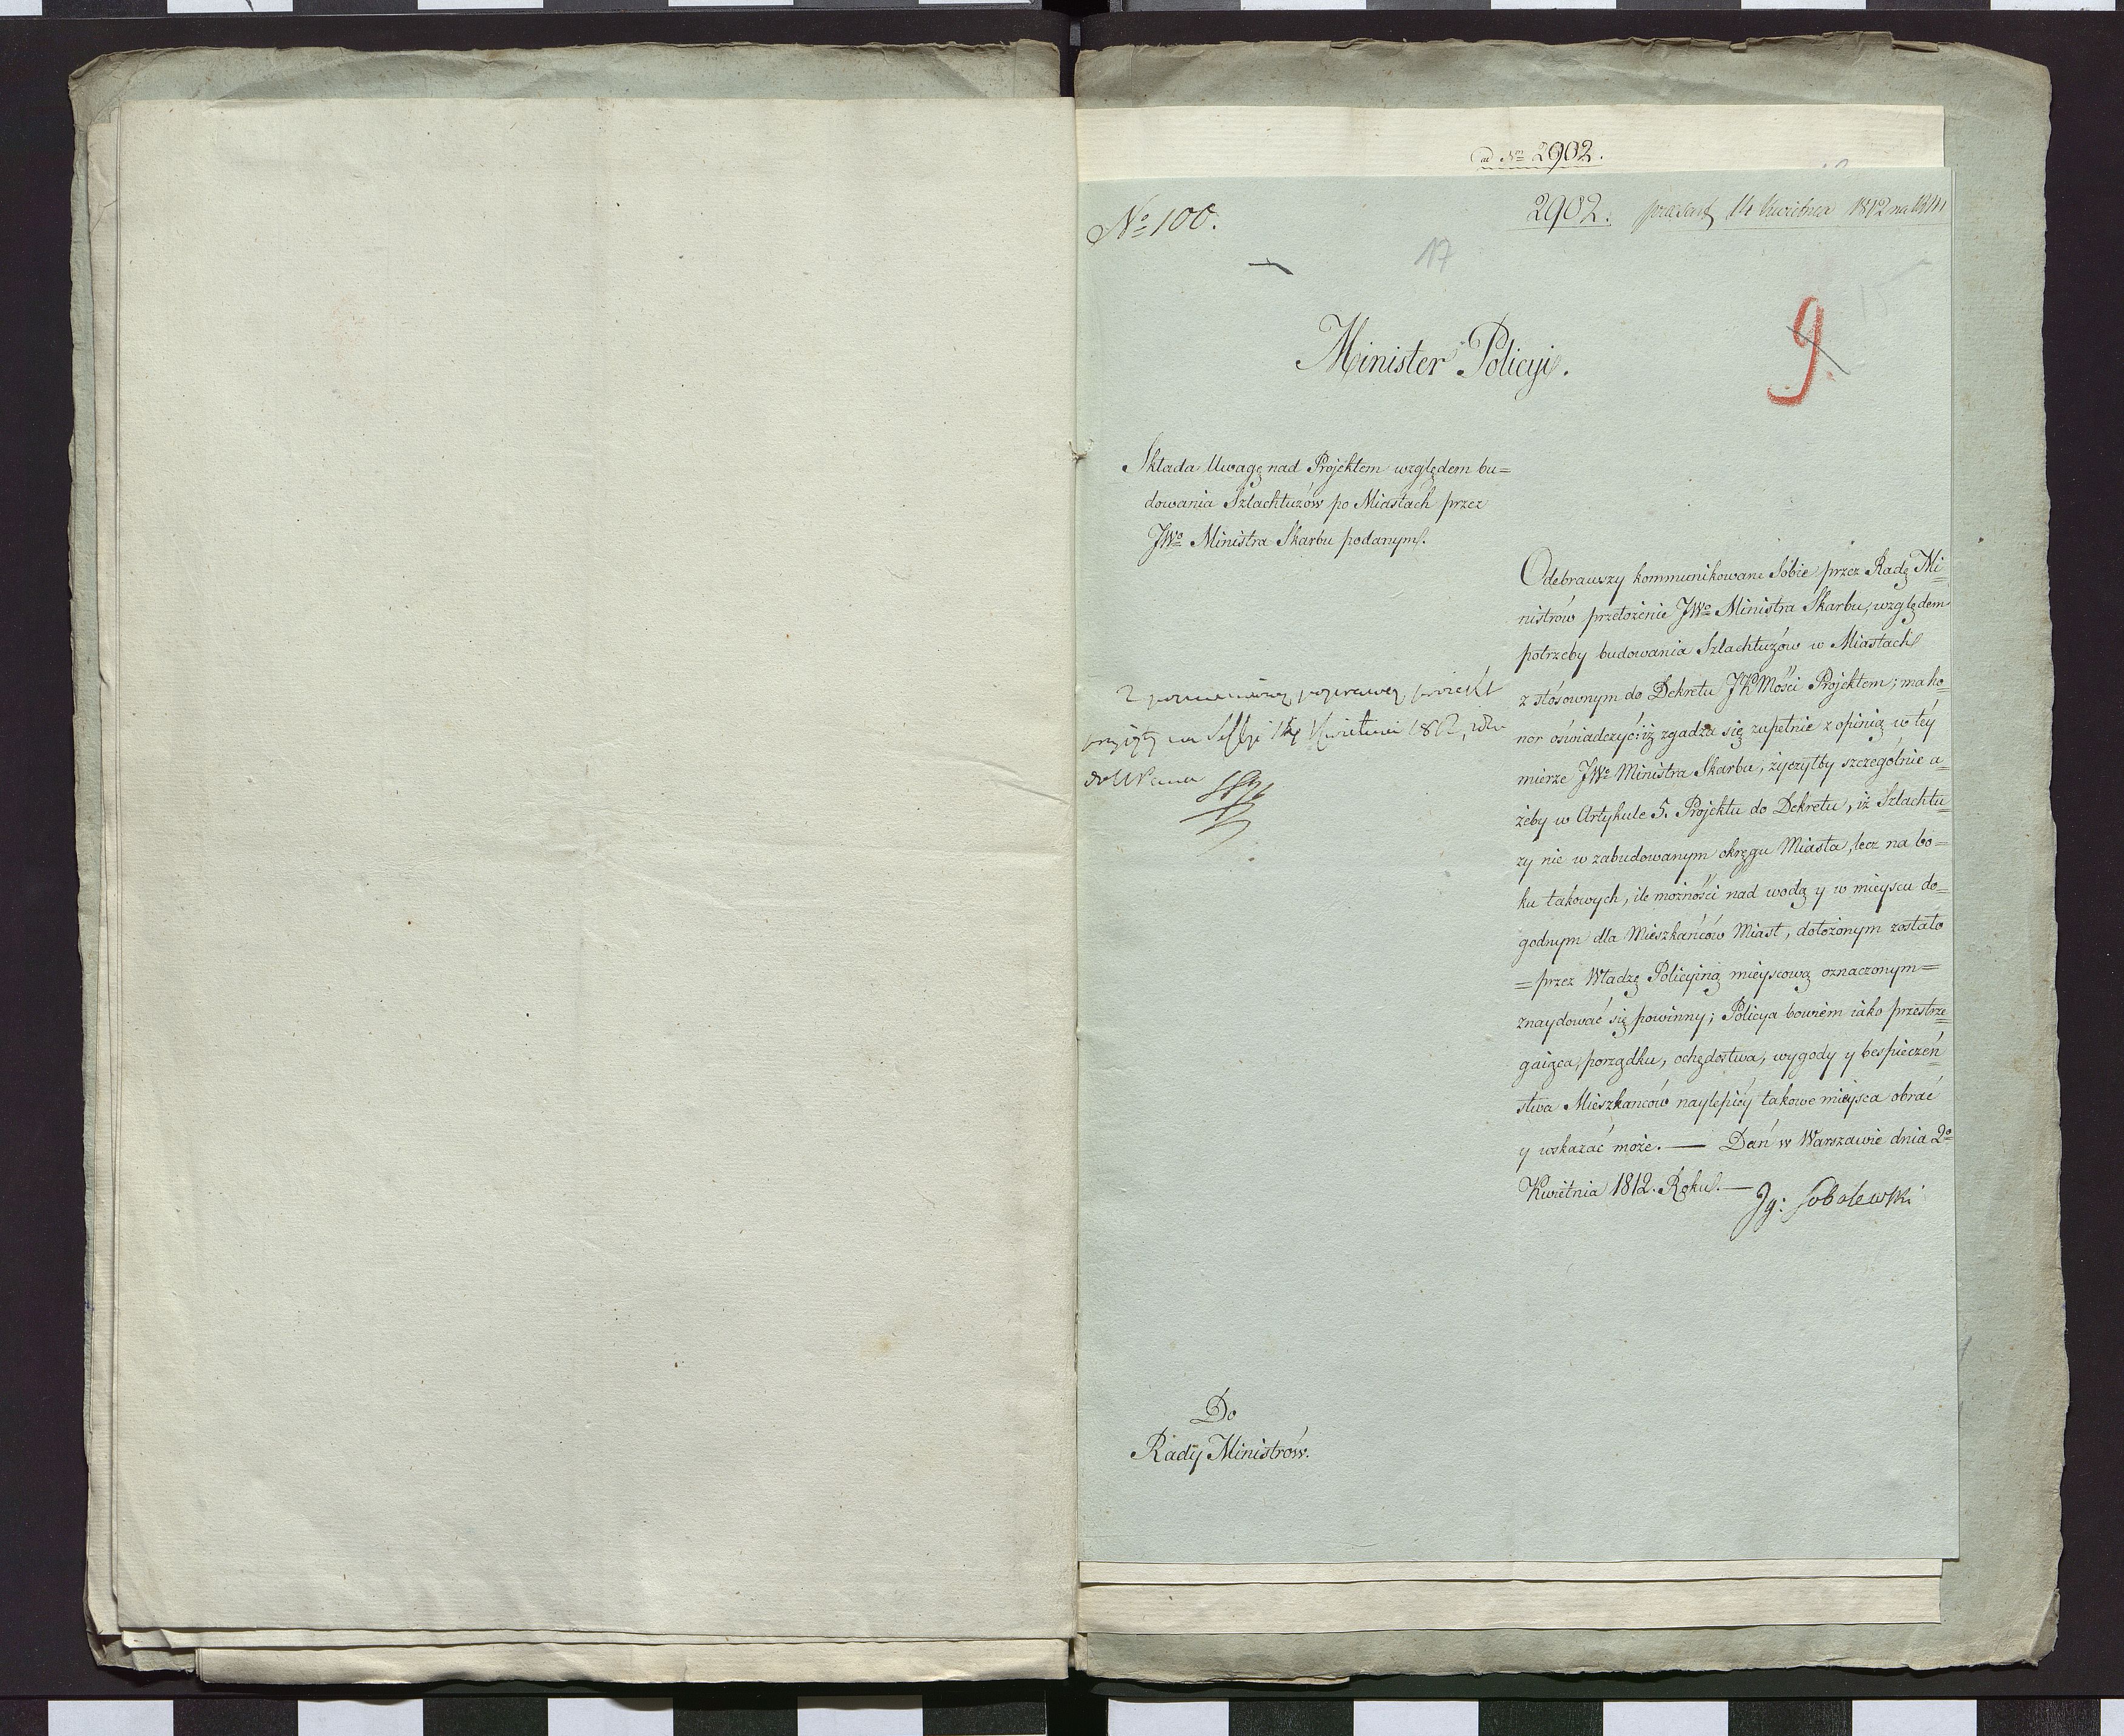 ad Nrm 2902.
No 100.
2902. praesent 14 Kwietnia 1812 na
17
9
Minister Policyi.
Składa Uwagę nad Projektem względem bu=
dowania Szlachtuzów po Miastach przez
JWo Ministra Skarbu podanym.
Odebrawszy kommunikowane Sobie przez Radę Mi=
nistrów przełożenie JWo Ministra Skarbu, względem
potrzeby budowania Szlachtuzów w Miastach
z stósownym do Dekretu JKMości Projektem; ma ho=
nor oświadczyć: iż zgadza się zupełnie z opinią w téy
mierze JWo Ministra Skarbu, życzyłby szczególnie a=
żeby w Artykule 5. Projektu do Dekretu, iż Szlachtu=
zy nie w zabudowanym okręgu Miasta, lecz na bo=
ku takowych, ile możności nad wodą y w mieyscu do=
godnym dla Mieszkańców Miast, dołożonym zostało
= przez Władzę Policyiną mieyscową oznaczonym =
znaydować się powinny; Policya bowiem iako przestrze=
gaiąca, porządku, ochędostwa, wygody y bespieczeń=
stwa Mieszkanców naylepiéy takowe mieysca obrać
y wskazać może. — Dań w Warszawie dnia 2o
Kwietnia 1812. Roku. —
Ig: Sobolewski
Z poprawą proiekt
przyięty na Sessyi 14 Kwietnia 1812,
Do
Rady Ministrów.